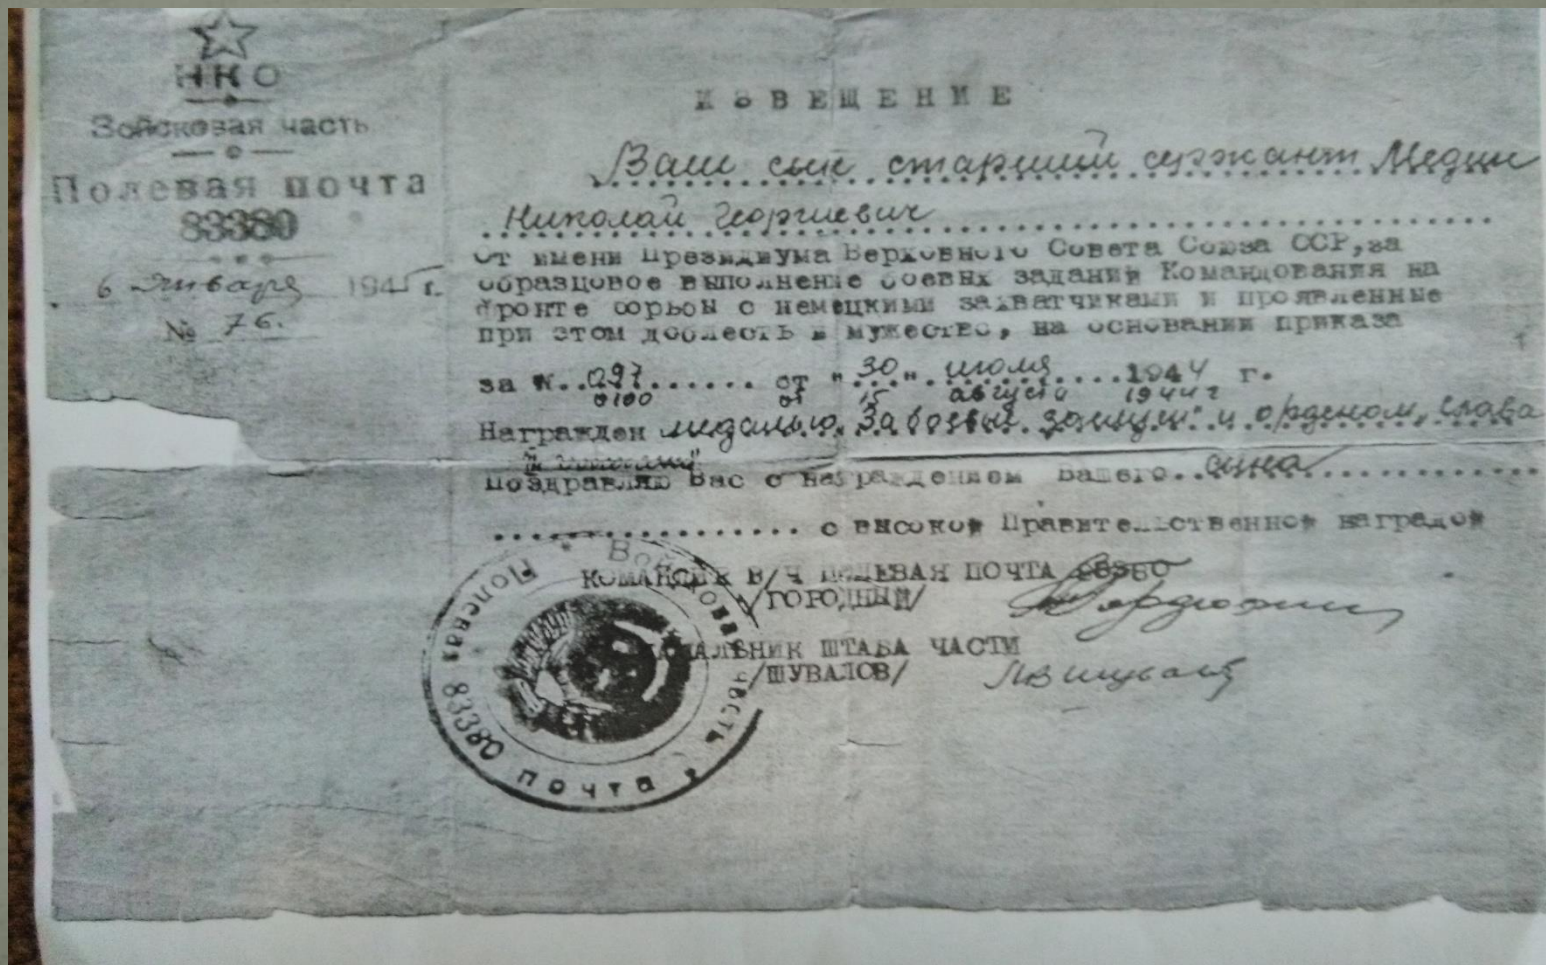 НКО
Зойсковая часть
Полевая почта
83380
6 января 1945 г.
№ 76.
ИЗВЕЩЕНИЕ
Ваш сын старший сержант Медин
Николай Георгиевич
От имени Президиума Верховного Совета Союза ССР, за
образцовое выполнение боевых заданий Командования на
фронте борьбы с немецкими захватчиками и проявленные
при этом доблесть и мужество, на основании приказа
за №..097....... от "30" июля 1944 г.
0100 от 15 августа 1944 г
Награжден медалью "За боевые заслуги" и орденом "Слава
Поздравляю Вас с награждением Вашего..сына
с високой Правительственной наградой
КОМАНДИР В/Ч ПОЛЕВАЯ ПОЧТА 83380
/ГОРОДНЫЙ/
НАЧАЛЬНИК ШТАБА ЧАСТИ
/ШУВАЛОВ/
Войсковая часть * Полевая почта 83380